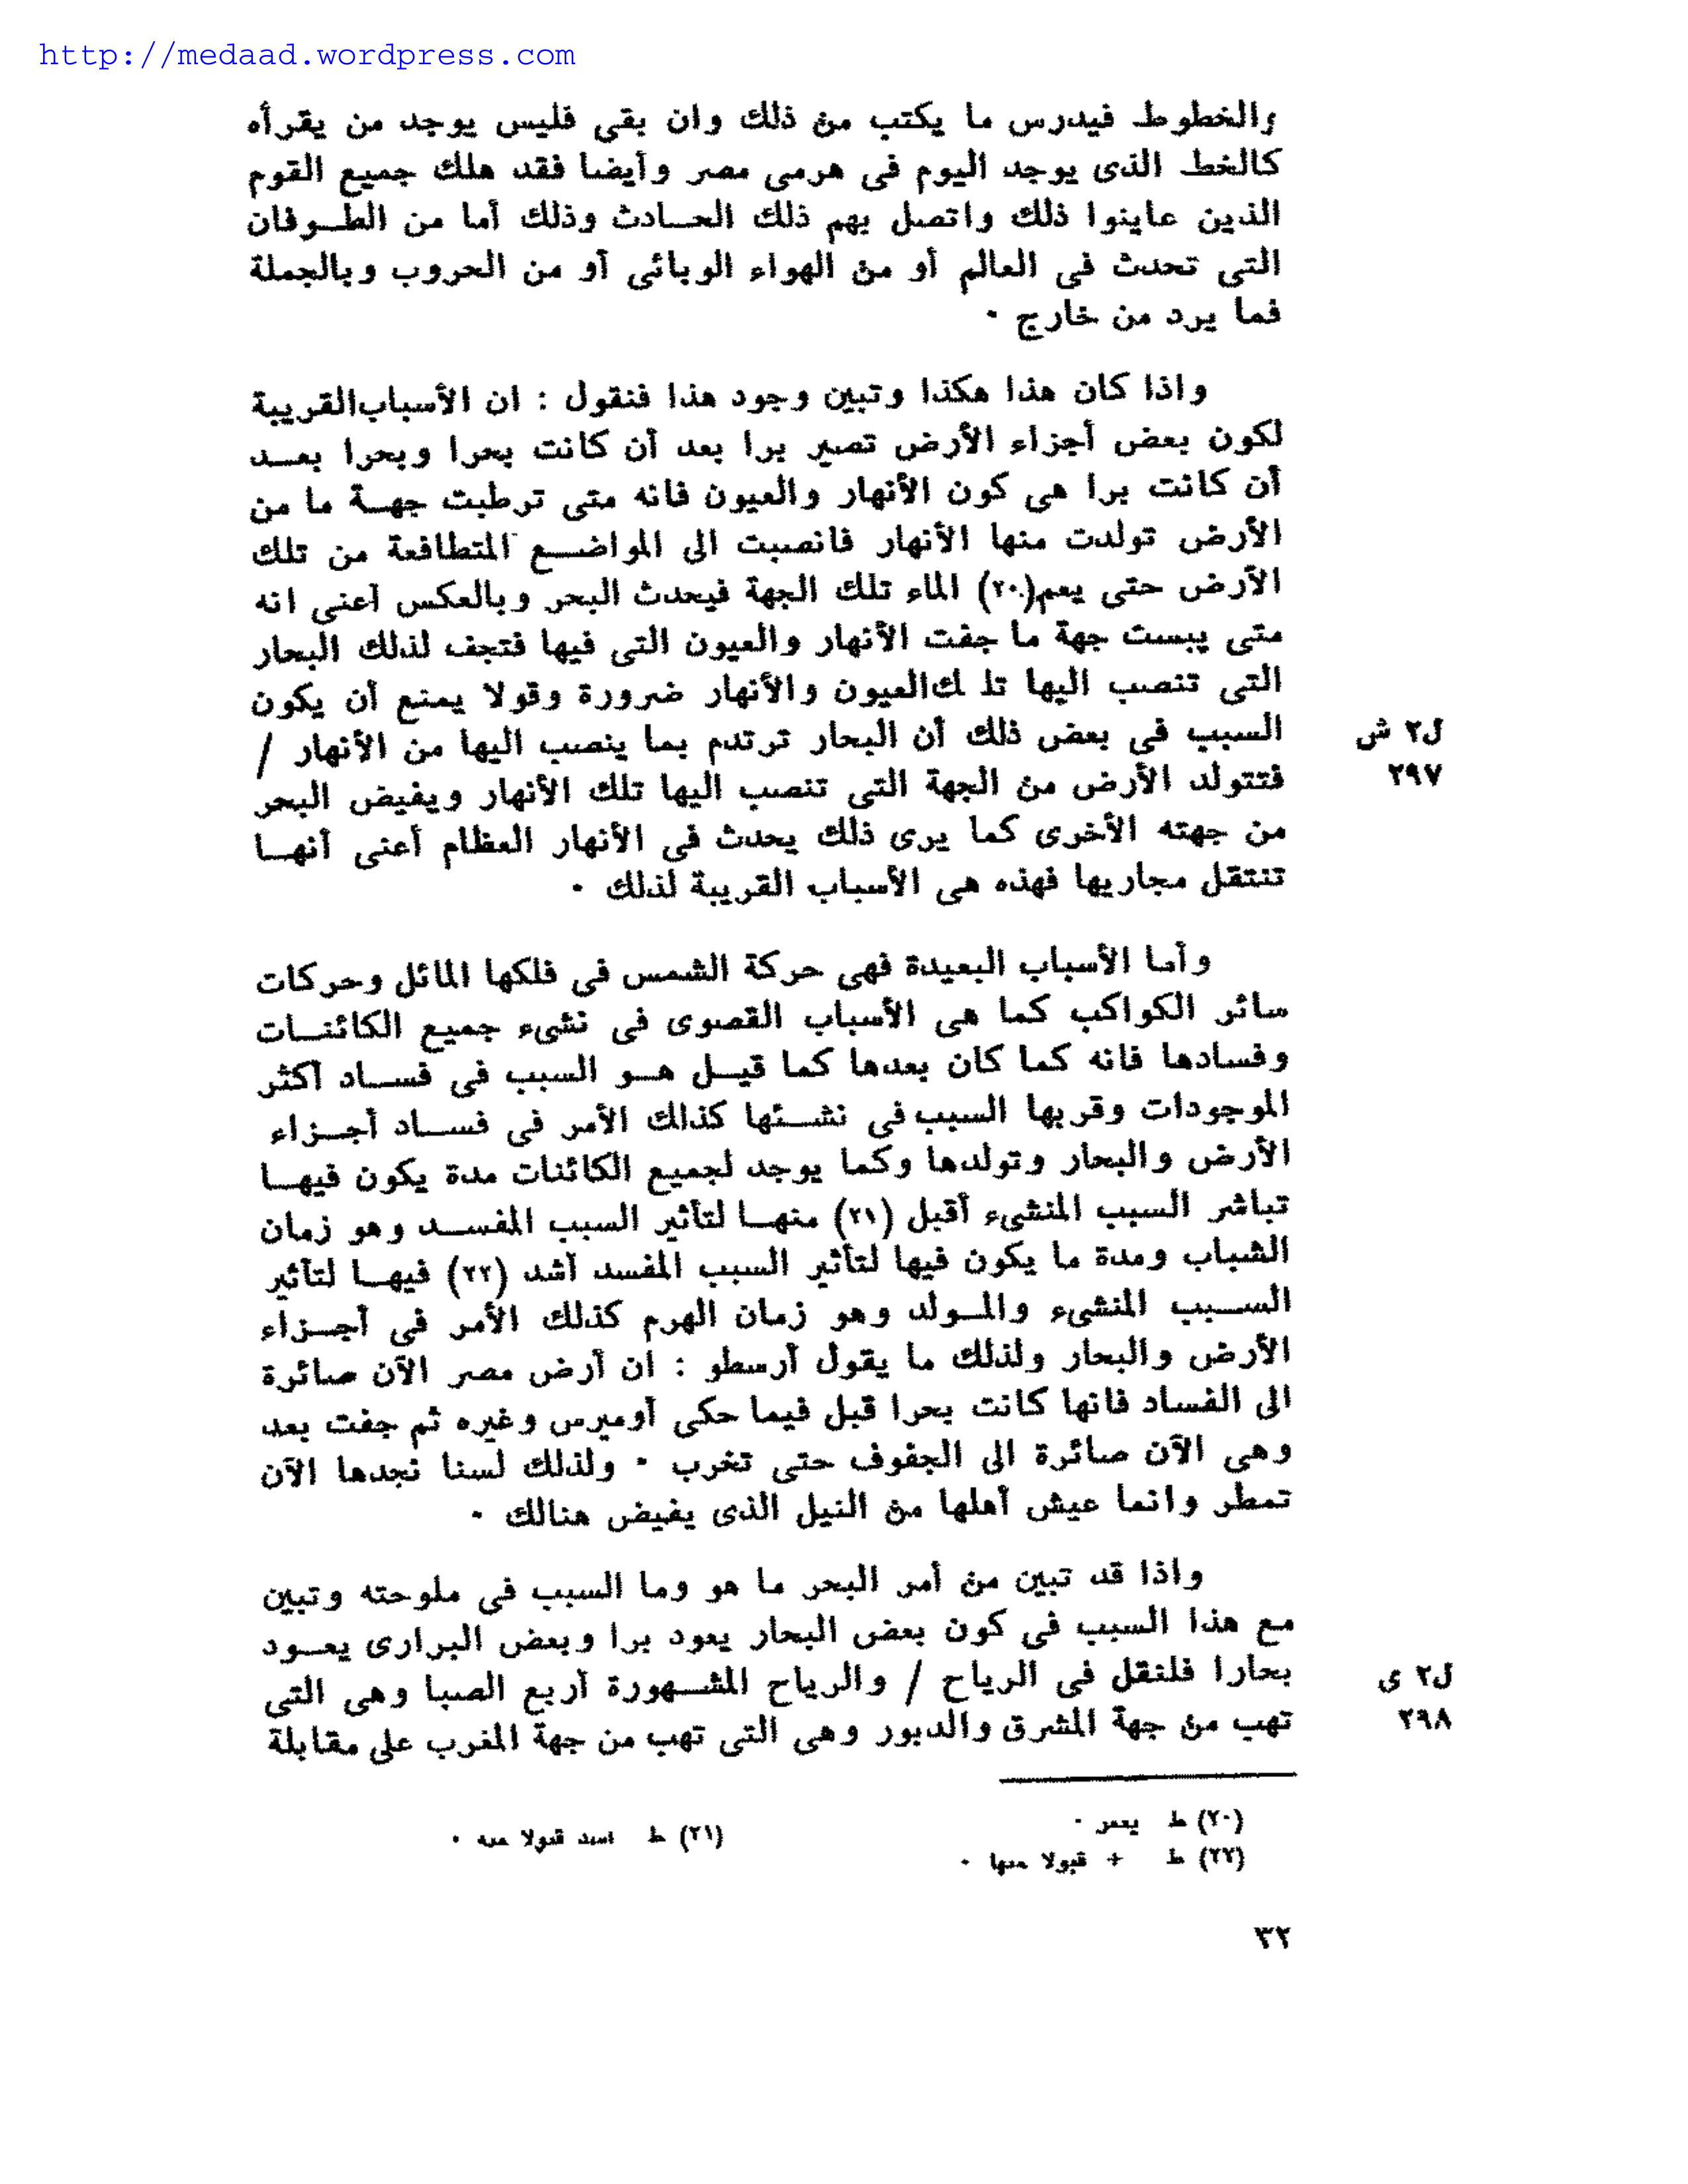 http://medaad.wordpress.com
والخطوط فيدرس ما يكتب من ذلك وان بقى فليس يوجد من يقرأه
كالخط الذى يوجد اليوم فى هرمى مصر وأيضا فقد هلك جميع القوم
الذين عاينوا ذلك واتصل بهم ذلك الحادث وذلك أما من الطوفان
التى تحدث فى العالم أو من الهواء الوبائى أو من الحروب وبالجملة
فما يرد من خارج ·
واذا كان هذا هكذا وتبين وجود هذا فنقول : ان الأسباب القريبة
لكون بعض أجزاء الأرض تصير برا بعد أن كانت بحرا وبحرا بعد
أن كانت برا هى كون الأنهار والعيون فانه متى ترطبت جهة ما من
الأرض تولدت منها الأنهار فانصبت الى المواضع المتطافعة من تلك
الأرض حتى يعم(٢٠) الماء تلك الجهة فيحدث البحر وبالعكس أعنى انه
متى يبست جهة ما جفت الأنهار والعيون التى فيها فتجف لذلك البحار
التى تنصب اليها تلك العيون والأنهار ضرورة وقولا يمنع أن يكون
السبب فى بعض ذلك أن البحار ترتدم بما ينصب اليها من الأنهار /
ل٢ ش
٢٩٧
فتتولد الأرض من الجهة التى تنصب اليها تلك الأنهار ويفيض البحر
من جهته الأخرى كما يرى ذلك يحدث فى الأنهار العظام أعنى أنها
تنتقل مجاريها فهذه هى الأسباب القريبة لذلك ·
وأما الأسباب البعيدة فهى حركة الشمس فى فلكها المائل وحركات
سائر الكواكب كما هى الأسباب القصوى فى نشىء جميع الكائنات
وفسادها فانه كما كان بعدها كما قيل هو السبب فى فساد أكثر
الموجودات وقربها السبب فى نشئها كذلك الأمر فى فساد أجزاء
الأرض والبحار وتولدها وكما يوجد لجميع الكائنات مدة يكون فيها
تباشر السبب المنشىء أقبل (٢١) منها لتأثير السبب المفسد وهو زمان
الشباب ومدة ما يكون فيها لتأثير السبب المفسد أشد (٢٢) فيها لتأثير
السبب المنشىء والمولد وهو زمان الهرم كذلك الأمر فى أجزاء
الأرض والبحار ولذلك ما يقول أرسطو : ان أرض مصر الآن صائرة
الى الفساد فانها كانت بحرا قبل فيما حكى أوميرس وغيره ثم جفت بعد
وهى الآن صائرة الى الجفوف حتى تخرب · ولذلك لسنا نجدها الآن
تمطر وانما عيش أهلها من النيل الذى يفيض هنالك ·
واذا قد تبين من أمر البحر ما هو وما السبب فى ملوحته وتبين
مع هذا السبب فى كون بعض البحار يعود برا وبعض البرارى يعود
بحارا فلنقل فى الرياح / والرياح المشهورة أربع الصبا وهى التى
ل٢ ى
٢٩٨
تهب من جهة المشرق والدبور وهى التى تهب من جهة المغرب على مقابلة
(٢٠) ط يعمر ·
(٢١) ط اشد قبولا منه ·
(٢٢) ط + قبولا منها ·
٣٢